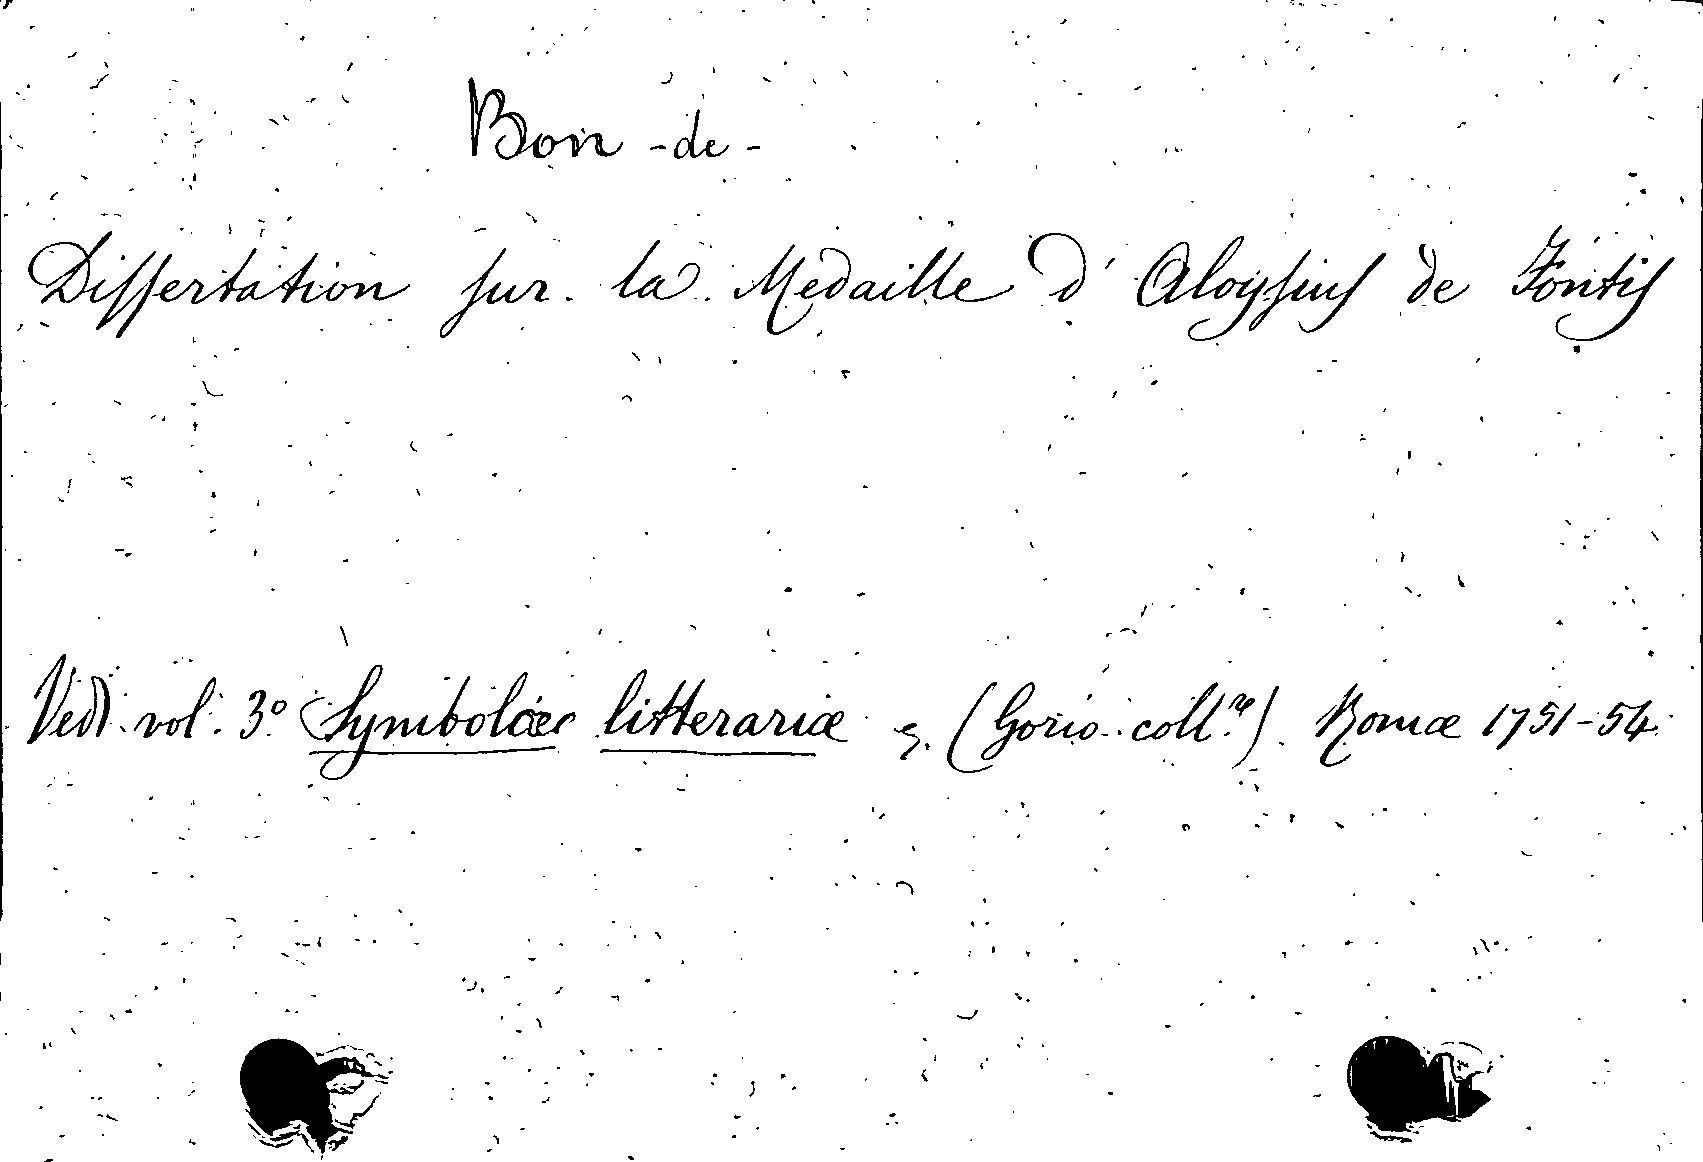 Bon - de -
Dissertation sur la Medaille d' Aloysius de Fontis
Vedi vol. 3º Symbolæ litterariæ (Gorio coll.re) Romæ 1751-54